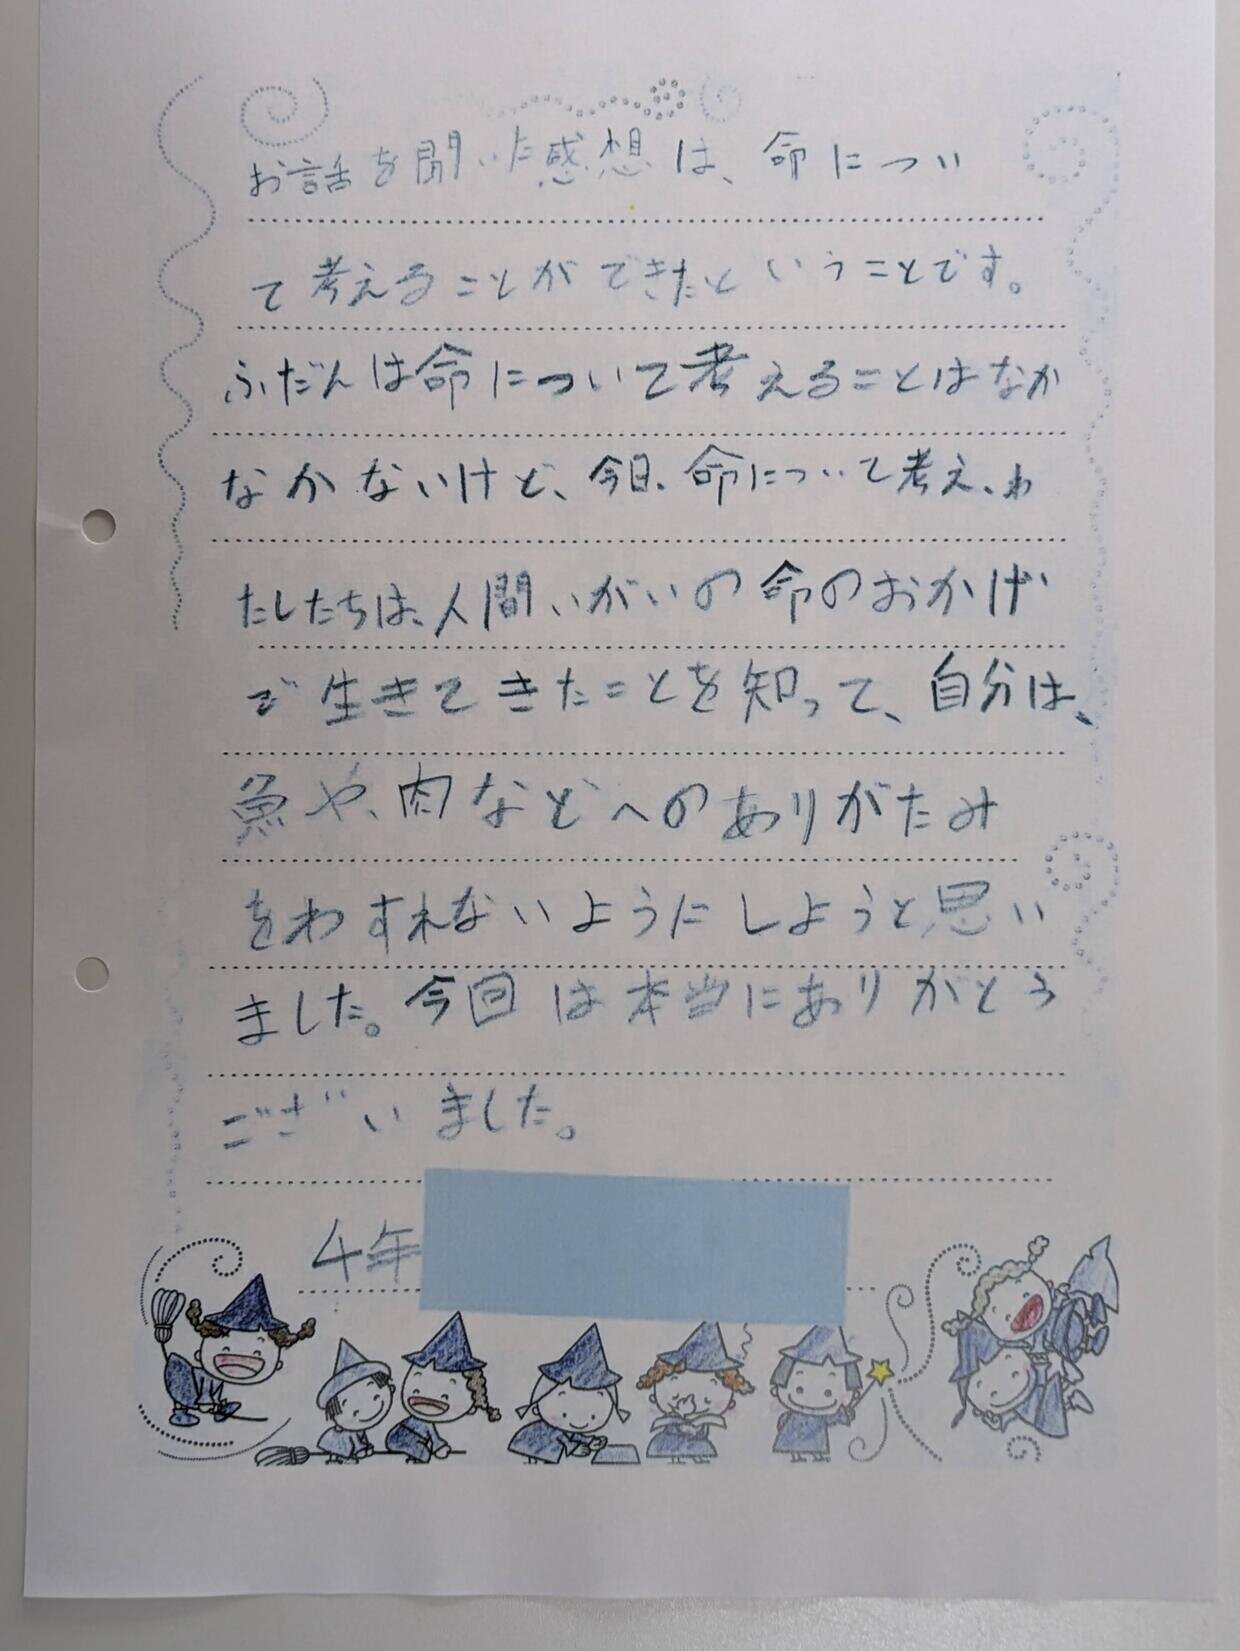 お話を聞いた感想は、命につい
て考えることができたということです。
ふだんは命について考えることはなか
なかないけど、今日、命について考え、わ
たしたちは、人間いがいの命のおかげ
で生きてきたことを知って、自分は、
魚や、肉などへのありがたみ
をわすれないようにしようと思い
ました。今回は本当にありがとう
ございました。
4年